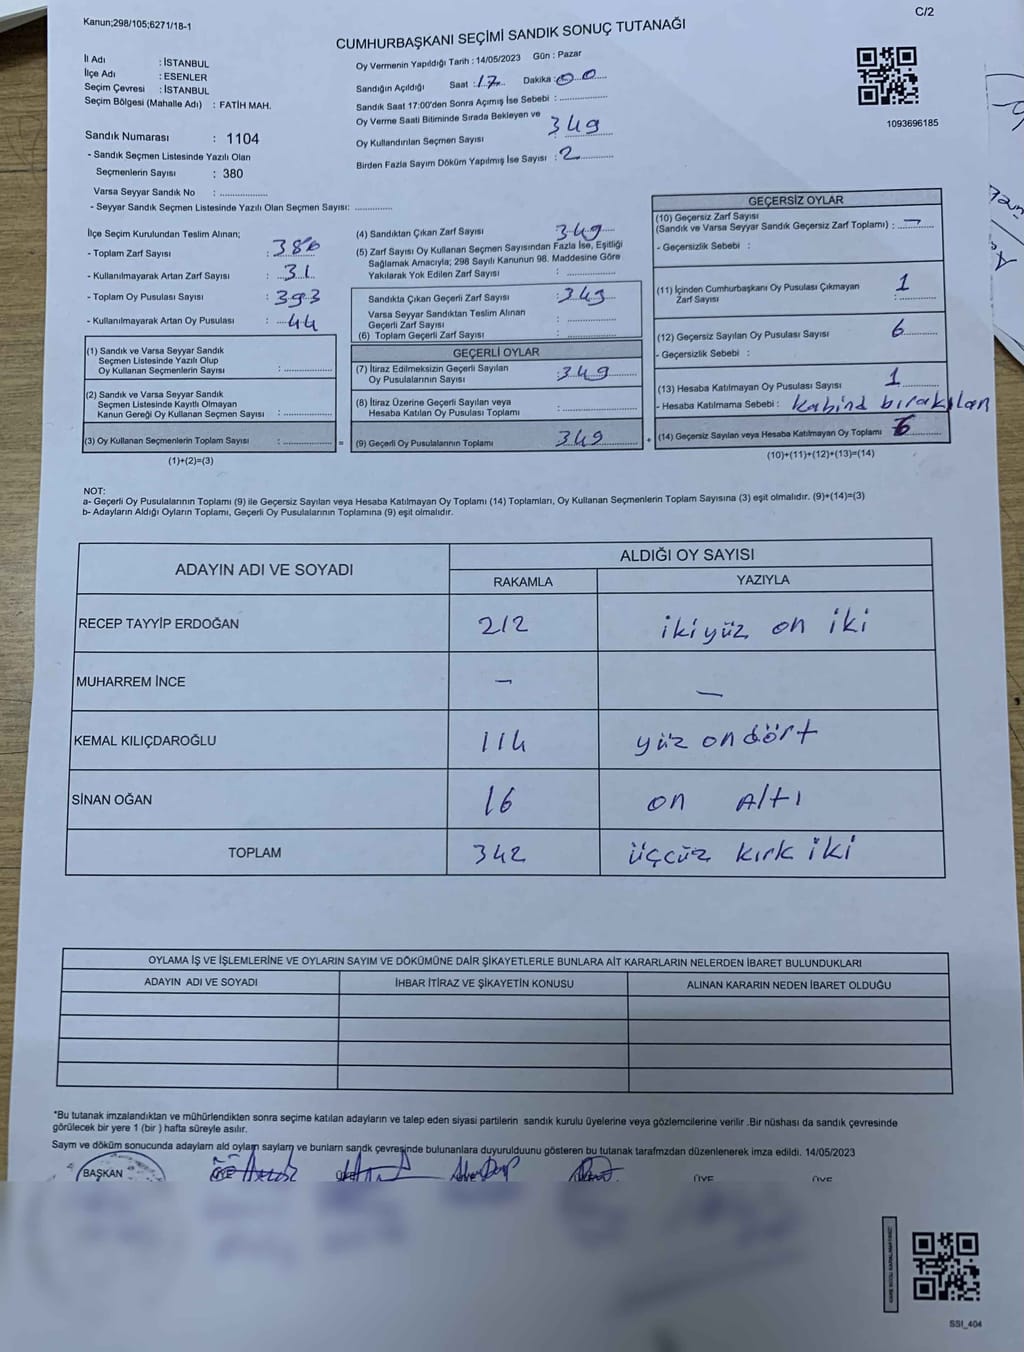 Kanun;298/105;6271/18-1
C/2
CUMHURBAŞKANI SEÇİMİ SANDIK SONUÇ TUTANAĞI
İl Adı : İSTANBUL
İlçe Adı : ESENLER
Seçim Çevresi : İSTANBUL
Seçim Bölgesi (Mahalle Adı) : FATİH MAH.
Oy Vermenin Yapıldığı Tarih : 14/05/2023 Gün : Pazar
Sandığın Açıldığı Saat : 17 Dakika : 00
Sandık Saat 17:00'den Sonra Açımış İse Sebebi :
Oy Verme Saati Bitiminde Sırada Bekleyen ve
Oy Kullandırılan Seçmen Sayısı 349
Birden Fazla Sayım Döküm Yapılmış İse Sayısı : 2
1093696185
Sandık Numarası : 1104
- Sandık Seçmen Listesinde Yazılı Olan
Seçmenlerin Sayısı : 380
Varsa Seyyar Sandık No :
- Seyyar Sandık Seçmen Listesinde Yazılı Olan Seçmen Sayısı:
İlçe Seçim Kurulundan Teslim Alınan;
- Toplam Zarf Sayısı : 380
- Kullanılmayarak Artan Zarf Sayısı : 31
- Toplam Oy Pusulası Sayısı : 393
- Kullanılmayarak Artan Oy Pusulası : 44
(1) Sandık ve Varsa Seyyar Sandık
Seçmen Listesinde Yazılı Olup
Oy Kullanan Seçmenlerin Sayısı :
(2) Sandık ve Varsa Seyyar Sandık
Seçmen Listesinde Kayıtlı Olmayan
Kanun Gereği Oy Kullanan Seçmen Sayısı :
(3) Oy Kullanan Seçmenlerin Toplam Sayısı :
(1)+(2)=(3)
=
(4) Sandıktan Çıkan Zarf Sayısı 349
(5) Zarf Sayısı Oy Kullanan Seçmen Sayısından Fazla İse, Eşitliği
Sağlamak Amacıyla; 298 Sayılı Kanunun 98. Maddesine Göre
Yakılarak Yok Edilen Zarf Sayısı :
Sandıkta Çıkan Geçerli Zarf Sayısı : 349
Varsa Seyyar Sandıktan Teslim Alınan
Geçerli Zarf Sayısı :
(6) Toplam Geçerli Zarf Sayısı :
GEÇERLİ OYLAR
(7) İtiraz Edilmeksizin Geçerli Sayılan
Oy Pusulalarının Sayısı : 349
(8) İtiraz Üzerine Geçerli Sayılan veya
Hesaba Katılan Oy Pusulası Toplamı :
(9) Geçerli Oy Pusulalarının Toplamı : 349
+
GEÇERSİZ OYLAR
(10) Geçersiz Zarf Sayısı
(Sandık ve Varsa Seyyar Sandık Geçersiz Zarf Toplamı) : —
- Geçersizlik Sebebi :
(11) İçinden Cumhurbaşkanı Oy Pusulası Çıkmayan
Zarf Sayısı : 1
(12) Geçersiz Sayılan Oy Pusulası Sayısı : 6
- Geçersizlik Sebebi :
(13) Hesaba Katılmayan Oy Pusulası Sayısı : 1
- Hesaba Katılmama Sebebi : kabind bırakılan
(14) Geçersiz Sayılan veya Hesaba Katılmayan Oy Toplamı
(10)+(11)+(12)+(13)=(14)
NOT:
a- Geçerli Oy Pusulalarının Toplamı (9) ile Geçersiz Sayılan veya Hesaba Katılmayan Oy Toplamı (14) Toplamları, Oy Kullanan Seçmenlerin Toplam Sayısına (3) eşit olmalıdır. (9)+(14)=(3)
b- Adayların Aldığı Oyların Toplamı, Geçerli Oy Pusulalarının Toplamına (9) eşit olmalıdır.
ADAYIN ADI VE SOYADI ALDIĞI OY SAYISI
RAKAMLA YAZIYLA
RECEP TAYYİP ERDOĞAN 212 ikiyüz on iki
MUHARREM İNCE — —
KEMAL KILIÇDAROĞLU 114 yüz ondört
SİNAN OĞAN 16 on Altı
TOPLAM 342 üççüz kırk iki
OYLAMA İŞ VE İŞLEMLERİNE VE OYLARIN SAYIM VE DÖKÜMÜNE DAİR ŞİKAYETLERLE BUNLARA AİT KARARLARIN NELERDEN İBARET BULUNDUKLARI
ADAYIN ADI VE SOYADI İHBAR İTİRAZ VE ŞİKAYETİN KONUSU ALINAN KARARIN NEDEN İBARET OLDUĞU
*Bu tutanak imzalandıktan ve mühürlendikten sonra seçime katılan adayların ve talep eden siyasi partilerin sandık kurulu üyelerine veya gözlemcilerine verilir .Bir nüshası da sandık çevresinde
görülecek bir yere 1 (bir ) hafta süreyle asılır.
Sayım ve döküm sonucunda adaylam ald oylam saylam ve bunlam sandk çevresinde bulunanlara duyurulduunu gösteren bu tutanak tarafmzdan düzenlenerek imza edildi. 14/05/2023
BAŞKAN ÜYE ÜYE
SSI_404